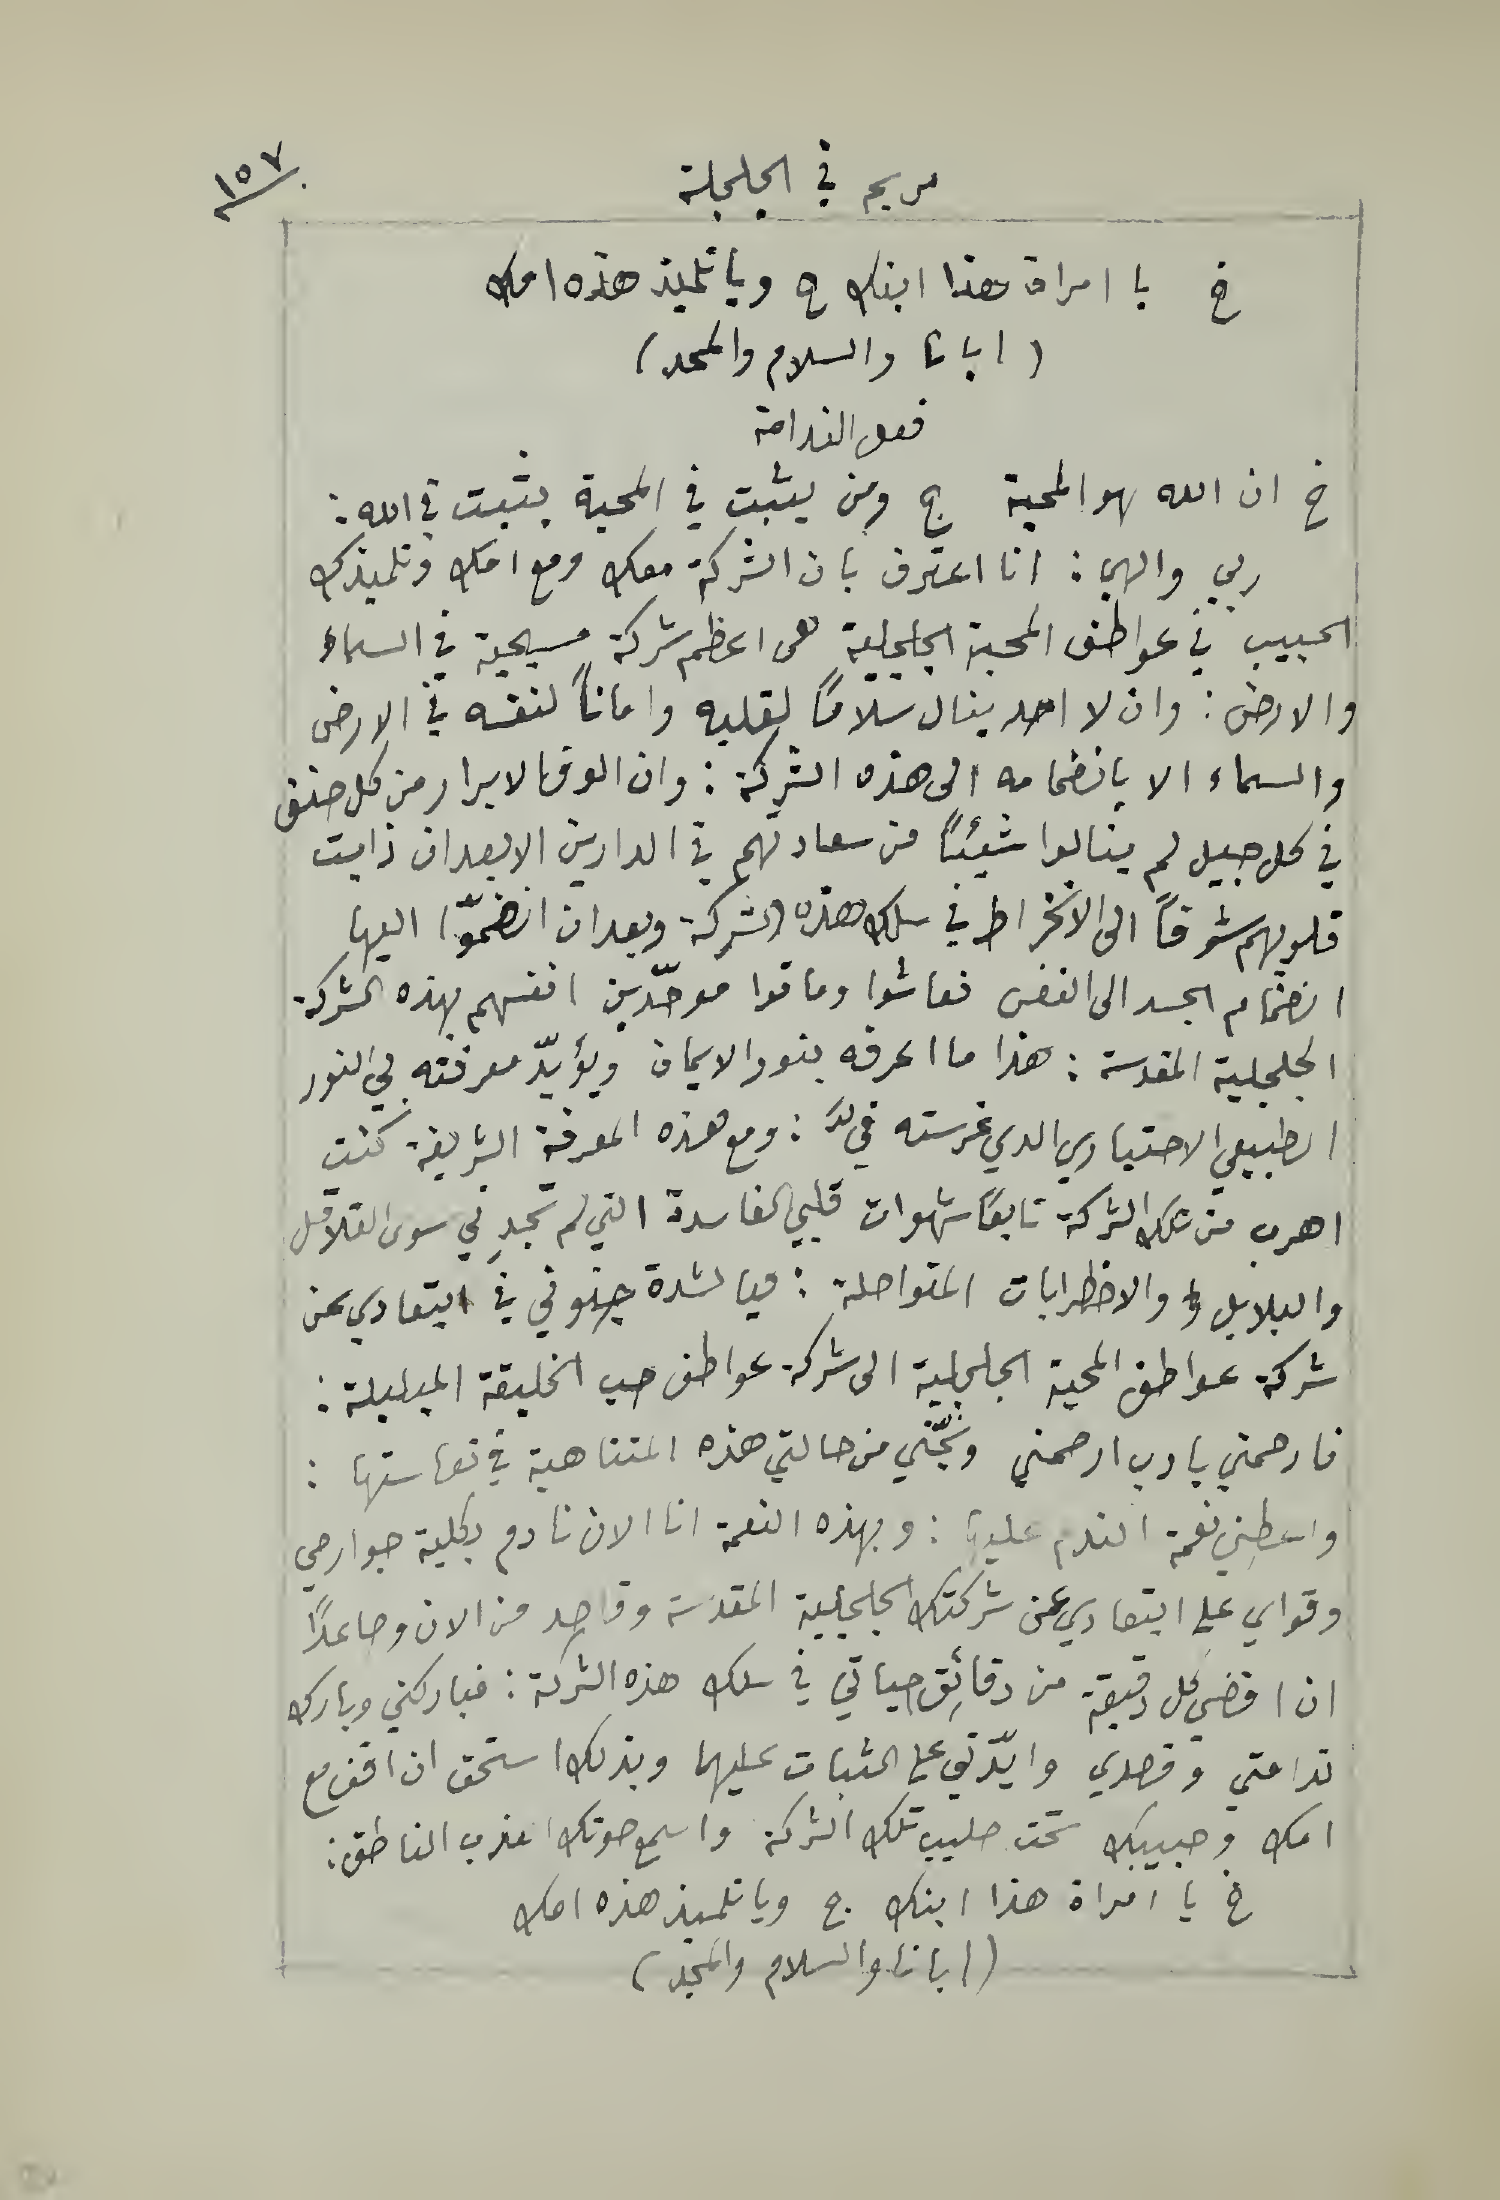 ١٥٧
مريم في الجلجلة
خ يا امراة هذا ابنك ج ويا تلميذ هذه امك
( ابانا والسلام والمجد )
فعل الندامة
خ ان الله هو المحبة ج ومن يثبت في المحبة يثبت في الله :
ربي والهي : انا اعترف بان الشركة معك ومع امك وتلميذك
الحبيب في عواطف المحبة الجلجلية هى اعظم شركة مسيحية في السماء
والارض : وان لا احد ينال سلامًا لقلبه وامانًا لنفسه في الارض
والسماء الا بانضمامه الى هذه الشركة : وان الوف الابرار من كل صنف
في كل جيل لم ينالوا شيئًا من سعادتهم في الدارين الا بعد ان ذابت
قلوبهم شوقًا الى الانخراط في سلك هذه الشركة وبعد ان انضمّوا اليها
انضمام الجسد الى النفس فعاشوا وماتوا موحّدين انفسهم بهذه الشركة
الجلجلية المقدسة : هذا ما اعرفه بنور الايمان ويؤيدّ معرفته لي النور
الطبيعي الاختياري الذي غرسته فيَّ : ومع هذه المعرفة الشريفة كنت
اهرب من تلك الشركة تابعًا شهوات قلبي الفاسدة التي لم تجدِ ني سوى القلاقل
والبلابل والاضطرابات المتواصلة : فيا لشدة جنوني في ابتعادي عن
شركة عواطف المحبة الجلجلية الى شركة عواطف حب الخليقة المبلبلة :
فارحمني يا رب ارحمني ونجّني من حالتي هذه المتناهية في تعاستها :
واعطِني نعمة الندم عليها : وبهذه النعمة انا الان نادم بكلية جوارحي
وقواي على ابتعادي عن شركتك الجلجلية المقدسة وقاصد من الان وصاعدًا
ان اقضي كل دقيقة من دقائق حياتي في سلك هذه الشركة : فباركني وبارك
ندامتي وقصدي وايّدني على الثبات عليهما وبذلك استحق ان اقف مع
امك وحبيبك تحت صليب تلك الشركة واسمع صوتك العذب الناطق :
خ يا امراة هذا ابنك ج ويا تلميذ هذه امك
( ابانا والسلام والمجد )